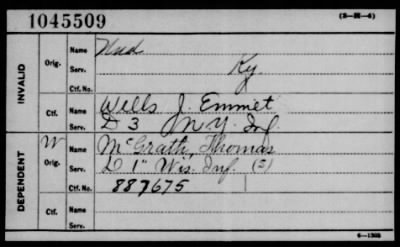 1045509
(3-21-4)
INVALID
Orig.
Name
Serv. Ky.
Ctf. No.
Ctf.
Name Wells J. Emmet
Serv. D 3 N.Y. Inf.
DEPENDENT
W
Orig.
Name McGrath, Thomas
Serv. D 1" Wis. Inf. (S)
Ctf. No. 887675
Ctf.
Name
Serv.